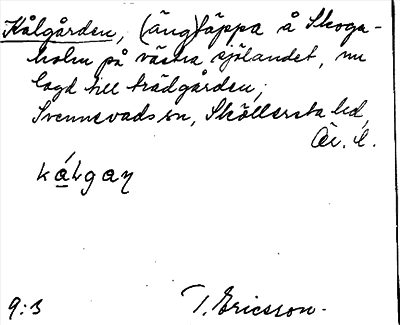 Kålgården, (äng)täppa å Skoga-
holm på västra sjölandet, nu
lagd till trädgården;
Svennevads sn, Sköllersta hd,
Ör. l.
kålgaɳ
9:3 T. Ericsson.